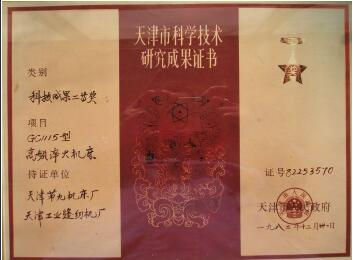 天津市科学技术
研究成果证书
类别
科技成果二等奖
项目
GC1115型
高频淬火机床
持证单位
天津第九机床厂
天津工业缝纫机厂
证号82253570
天津市人民政府
一九八二年十二月卅一日